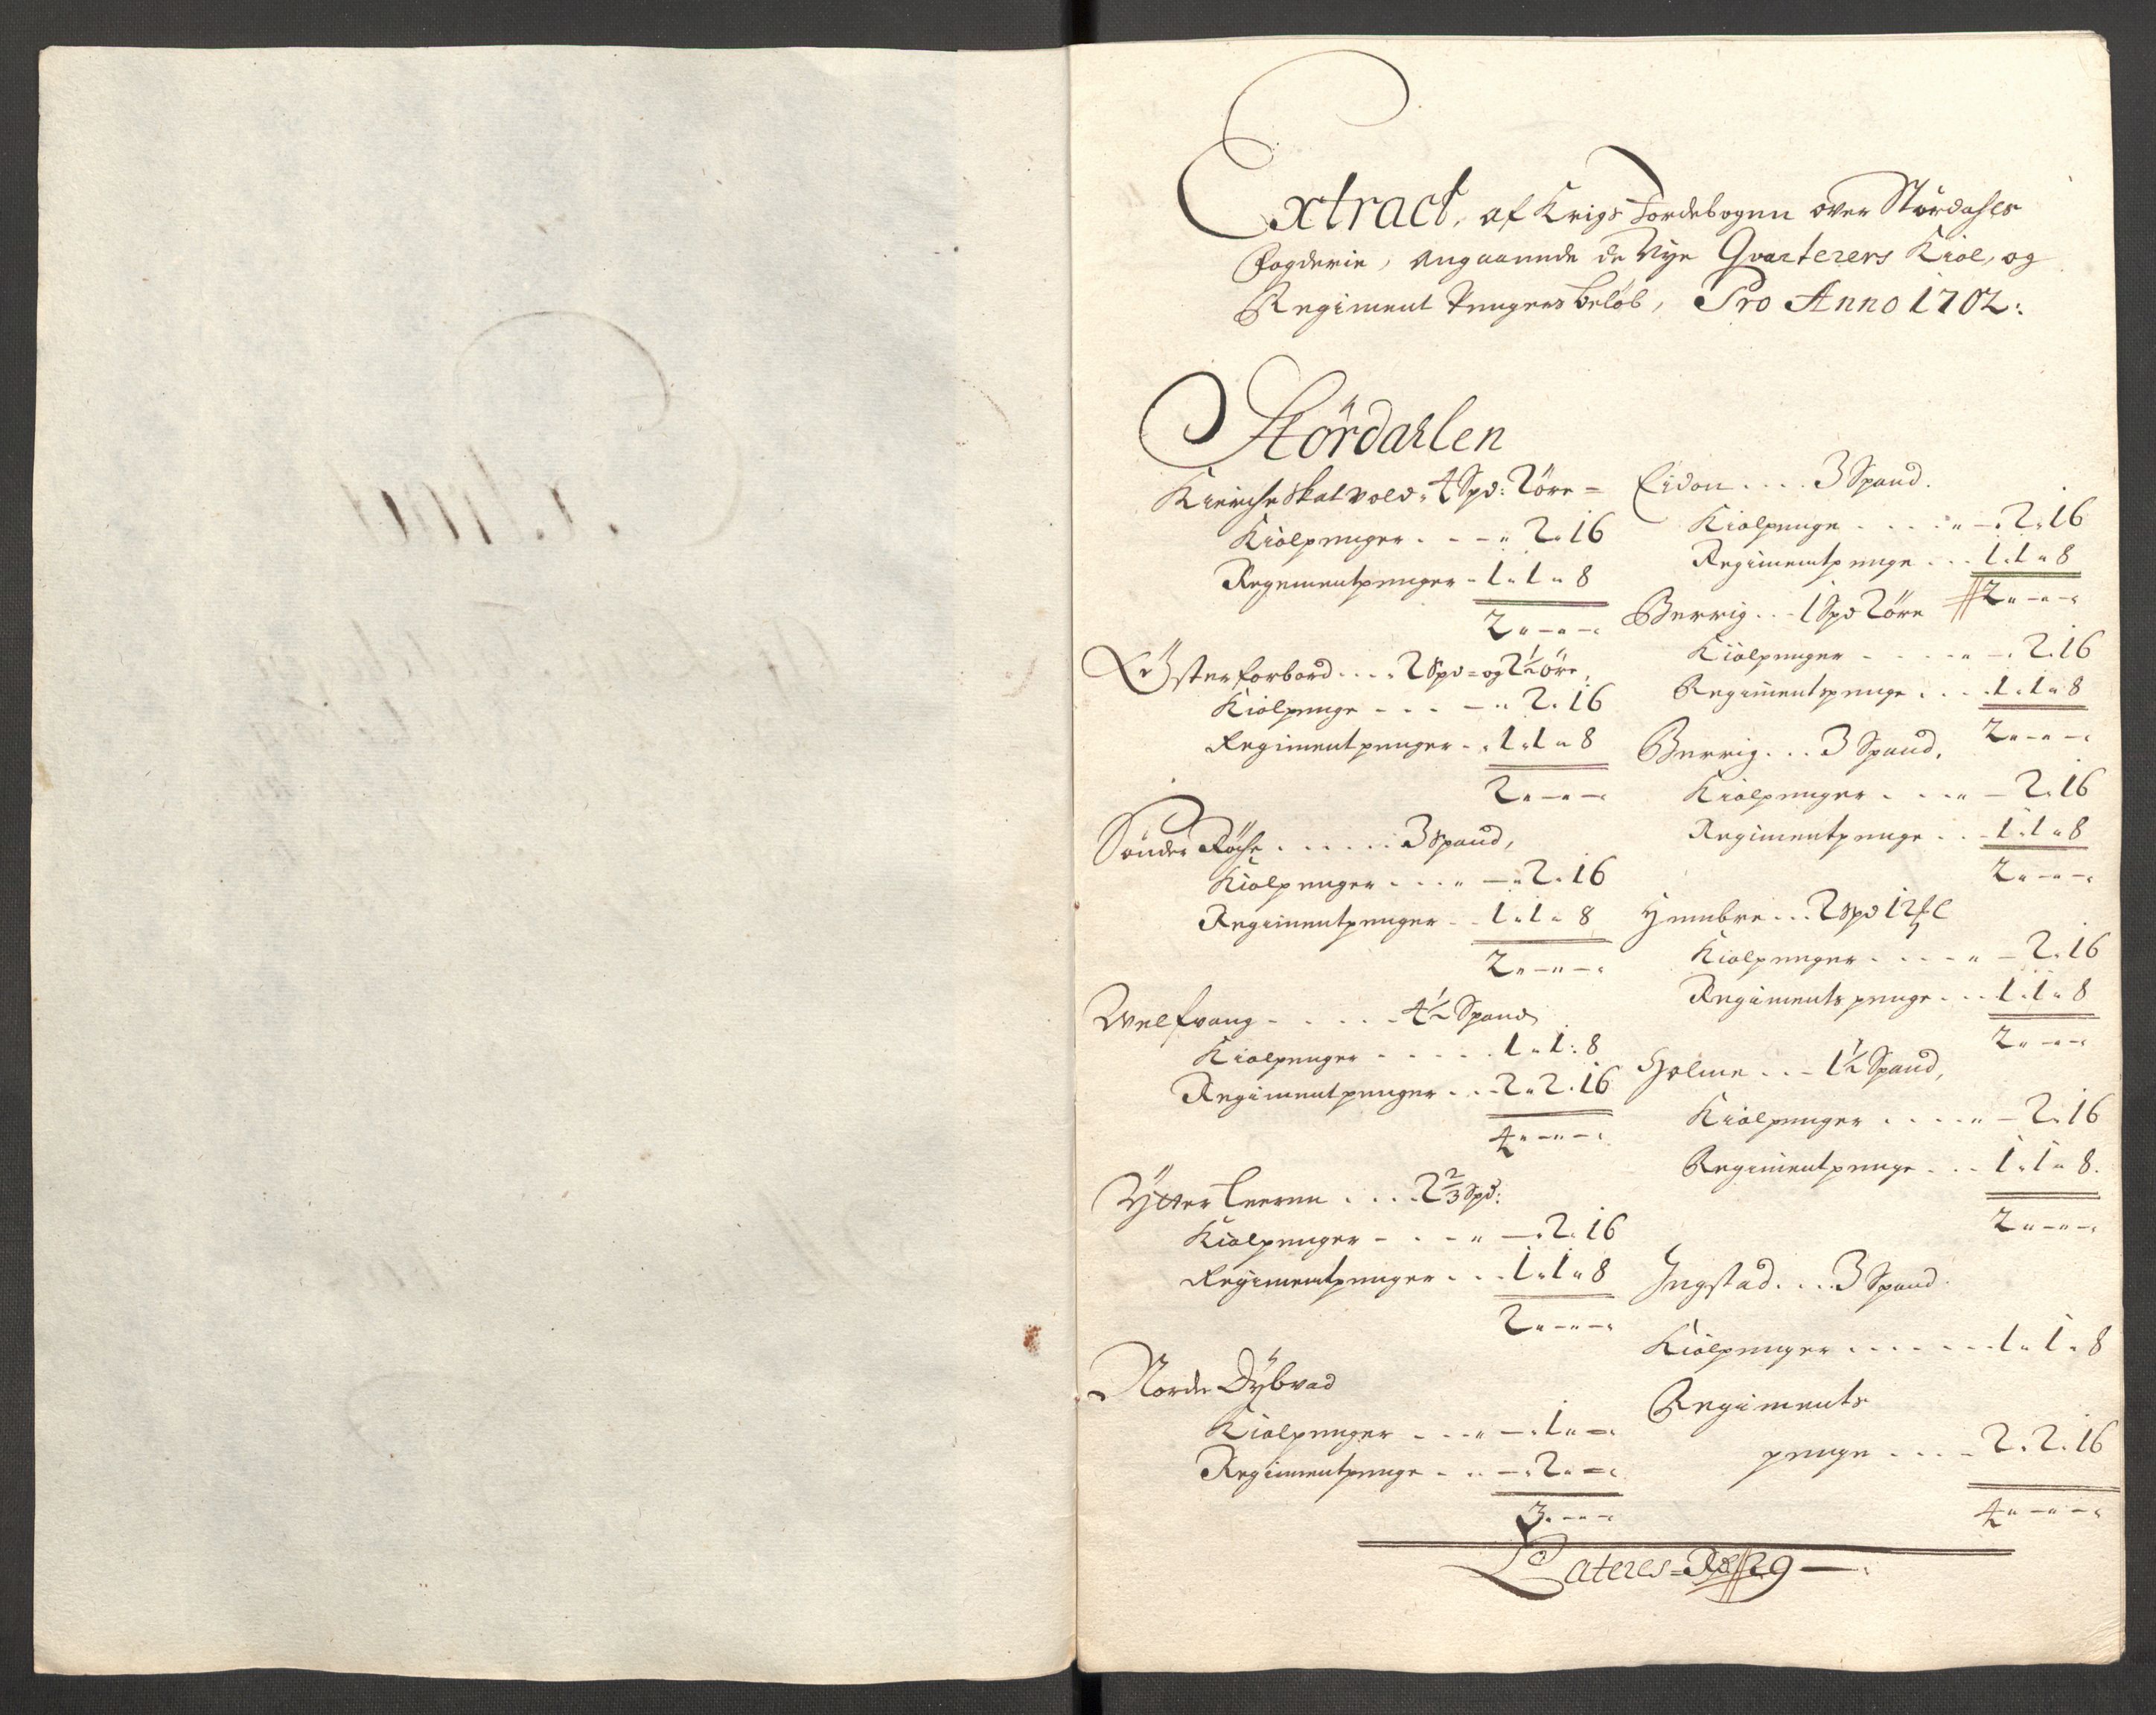 Extract, af Krigs Jordebogen over Stördahls
Fogderie, Angaaende de Nye Qvarterers Kiol, og
Regiment Penges beløb, Pro Anno 1702:
Stördahlen
Kierche Skatvold, 4 Spd: 2 öre =
Kiolpenger . - - " 2. 16
Regementpenger - 1. 1 " 8
2 " - " -
Österforbord .... 2 Spd = og 2½ öre,
Kiolpenge - - - - " 2. 16
Regimentpenger - . 1. 1 " 8
2 " - " -
Sönder Röche ...... 3 Spand,
Kiolpenger . . . " - " 2. 16
Regimentpenger - - 1. 1 " 8
2 " - " -
Welfvang - . . . . 4½ Spand
Kiolpenger - . . . . 1 " 1 : 8
Regimentpenger . . . 2 " 2. 16
4 " - " -
Ytter Leeren .... 2⅔ Spd:
Kiolpenger - . - " - . 2. 16
Regimentpenger . . . 1. 1 " 8
2 " - " -
Norde Dybvad
Kiolpenger . . . " - . 1 " =
Regimentpenge - . . - . 2. =
3. - " -
Eidon .... 3 Spand.
Kiolpenge . . . . " - . 2. 16
Regimentpenge . . . 1. 1 " 8
2 " - " -
Berrig . . - 1 Spd 2 öre
Kiolpenger - . . . " - . 2. 16
Regimentspenge . . . . 1. 1 " 8
2 " - " -
Berrig . . . 3 Spand,
Kiolpenger . . . " - 2. 16
Regimentpenge . . - 1. 1 " 8
2 " - " -
Hembre ... 2 Spd 12
Kiolpenger . . . - " - 2. 16
Regimentspenge . . . 1. 1 " 8
2 " - " -
Holme . . - 1½ Spand,
Kiolpenger . . . . " - 2. 16
Regimentpenge . . . 1. 1 " 8.
2 " - " -
Ingstad .... 3 Spand.
Kiolpenger . . . . . . 1 " 1 " 8
Regiments
penge . . . . 2. 2. 16
4 " - " -
Lateres = Rd 29 -